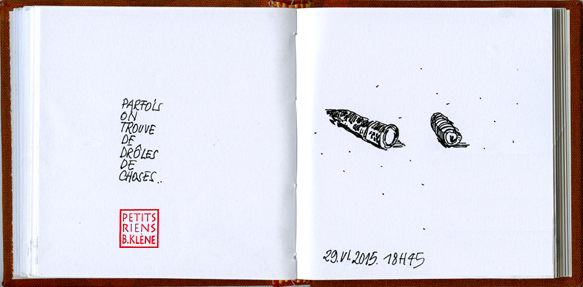 PARFOIS
ON
TROUVE
DE
DRÔLES
DE
CHOSES..
PETITS
RIENS
B.KLÈNE
29.VI.2015. 18H45